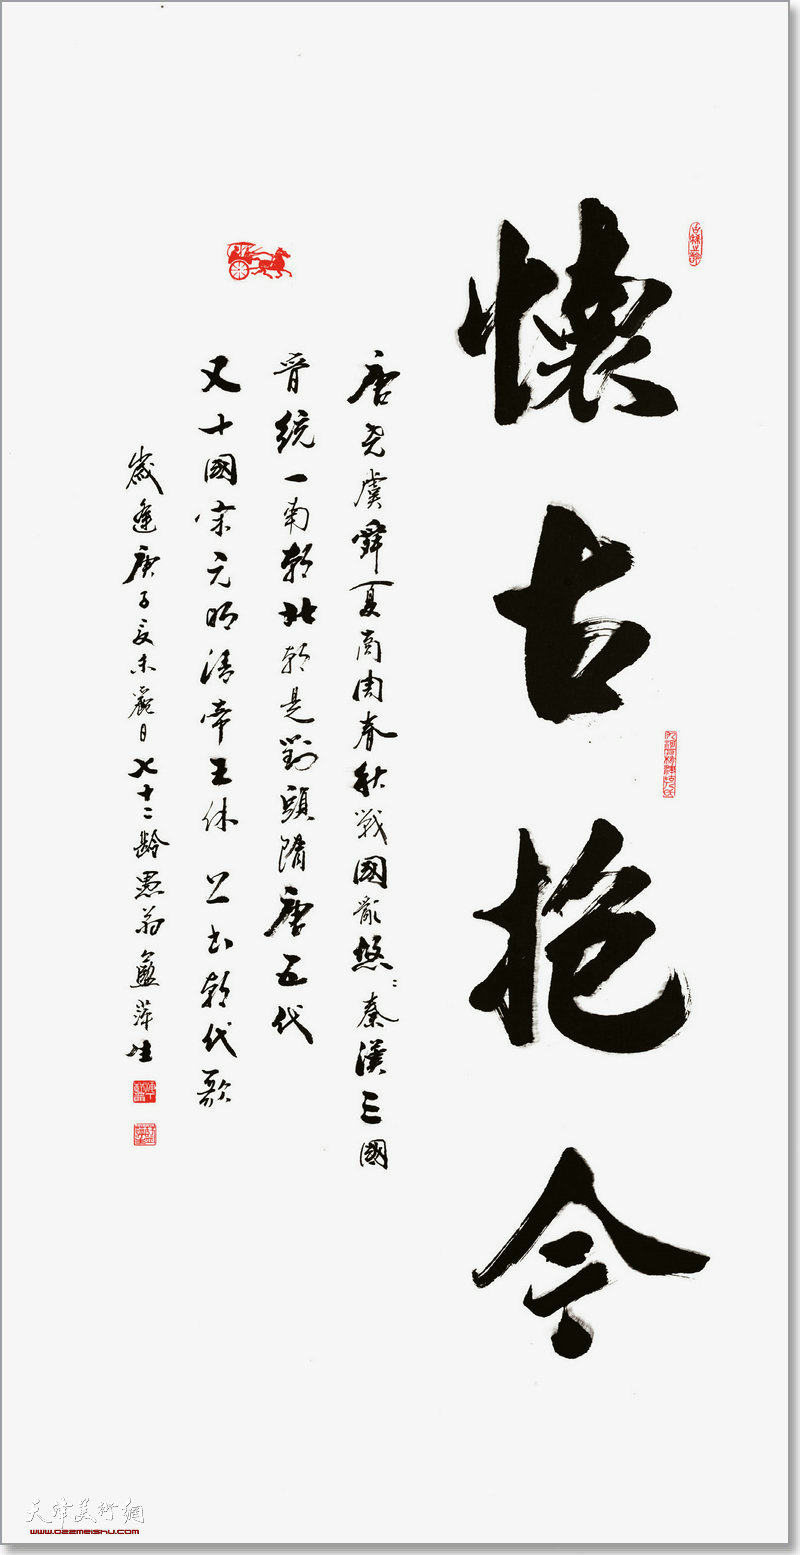 懷古抱今
唐堯虞舜夏商周春秋戰國亂悠〻秦漢三國
晉統一南朝北朝是對頭隋唐五代
又十國宋元明清帝王休 上書朝代歌
歲逢庚子辛未麗日七十二齡愚翁藍萍生
天津美術網
www.022meishu.com